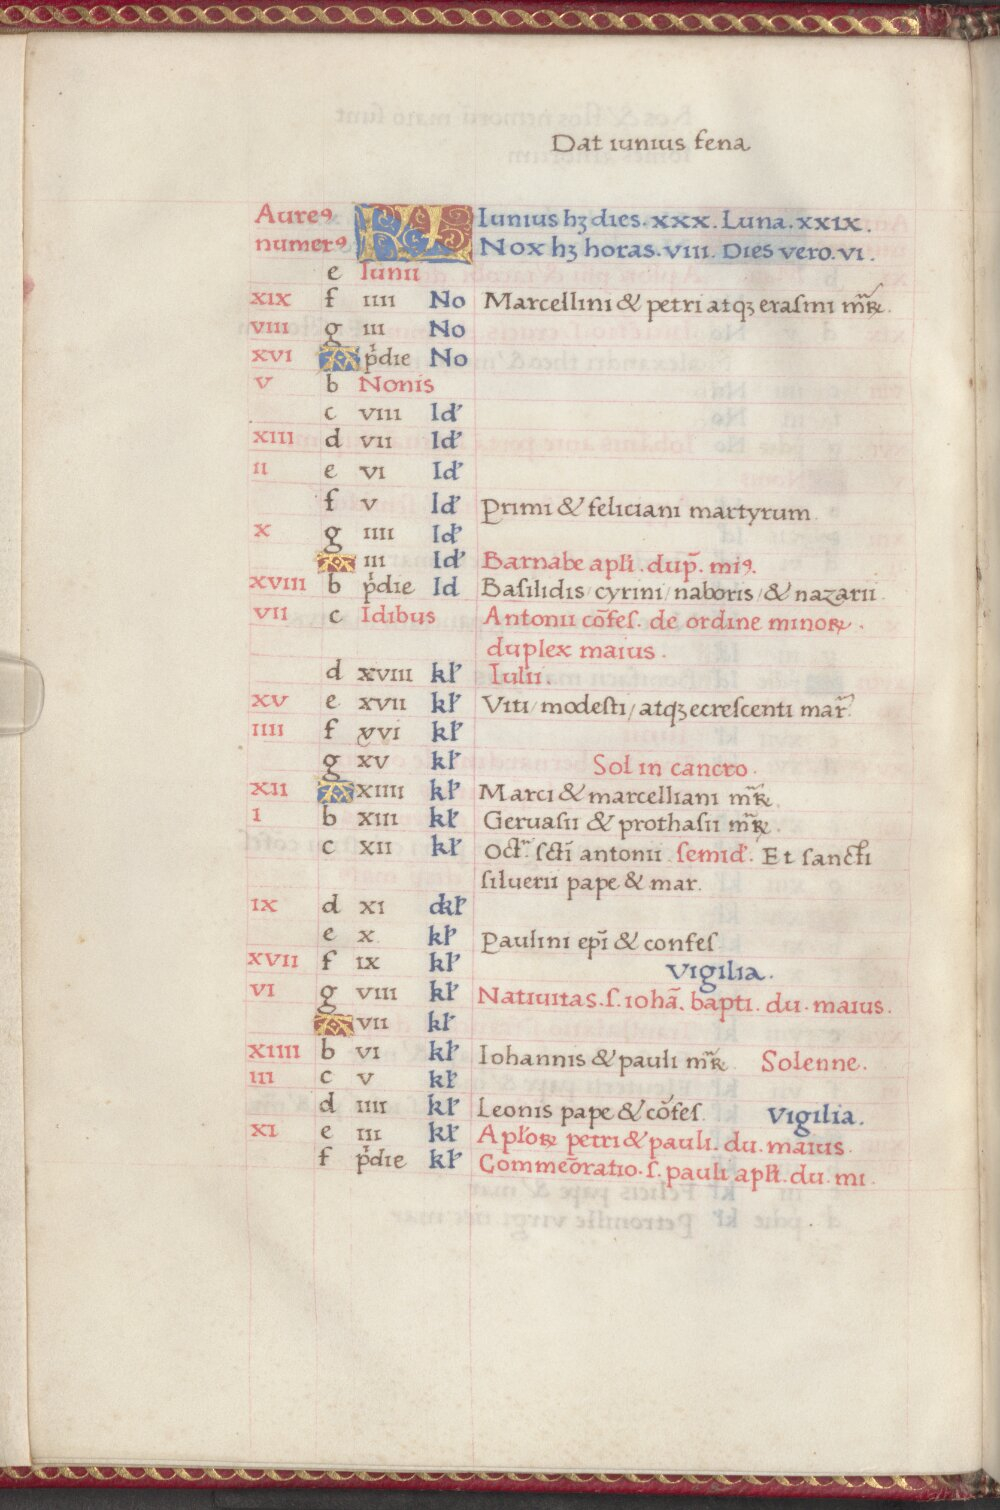 Dat iunius fena
Aureꝰ KL Iunius hꝫ dies. xxx. Luna. xxix.
numerꝰ Nox hꝫ horas. viii. Dies vero. vi.
e Iunii
xix f iiii No Marcellini & petri atqꝫ erasmi mr̃ꝝ.
viii g iii No
xvi A pͥdie No
v b Nonis
c viii Id'
xiii d vii Id'
ii e vi Id'
f v Id' Primi & feliciani martyrum
x g iiii Id'
A iii Id' Barnabe apłi. dup̃. miꝰ.
xviii b pͥdie Id Basilidis / cyrini / naboris / & nazarii.
vii c Idibus Antonii cõfes. de ordine minoꝝ.
duplex maius.
d xviii kł Iulii.
xv e xvii kł Viti / modesti / atqꝫ ecrescenti mar̃.
iiii f xvi kł
g xv kł Sol in cancro.
xii A xiiii kł Marci & marcelliani mr̃ꝝ.
i b xiii kł Geruasii & prothasii mr̃ꝝ.
c xii kł Oct̃. sc̃ti antonii semid'. Et sancti
siluerii pape & mar.
ix d xi dkł
e x kł Paulini epĩ & confes
xvii f ix kł Vigilia.
vi g viii kł Natiuitas. s. iohã. bapti. du. maius.
A vii kł
xiiii b vi kł Iohannis & pauli mr̃ꝝ. Solenne.
iii c v kł
d iiii kł Leonis pape & cõfes. Vigilia.
xi e iii kł Apłoꝝ petri & pauli. du. maius.
f pͥdie kł Commeõratio. s. pauli apłi. du. mi.